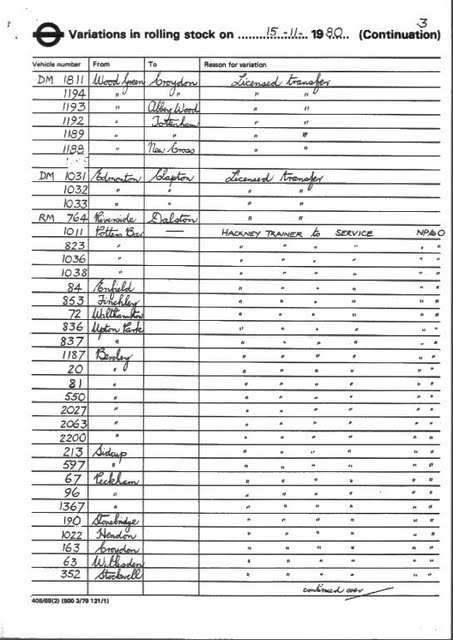 3
Variations in rolling stock on 15-11- 1980 (Continuation)
Vehicle number From To Reason for variation
DM 1811 Wood Green Croydon Licensed transfer
1194 " " " "
1193 " Abbey Wood " "
1192 " Tottenham " "
1189 " " " "
1198 " New Cross " "
DM 1031 Edmonton Clapton Licensed transfer
1032 " " " "
1033 " " " "
RM 764 Riverside Dalston " "
1011 Potters Bar — HACKNEY TRAINER to SERVICE NP40
823 " " " " " " "
1036 " " " " " " "
1038 " " " " " " "
84 Enfield " " " " " "
853 Finchley " " " " " "
72 Walthamstow " " " " " "
836 Upton Park " " " " " "
837 " " " " " " "
1187 Bexley " " " " " "
20 " " " " " " "
81 " " " " " " "
550 " " " " " " "
2027 " " " " " " "
2063 " " " " " " "
2200 " " " " " " "
213 Sidcup " " " " " "
597 " " " " " " "
67 Peckham " " " " " "
96 " " " " " " "
1367 " " " " " " "
190 Stonebridge " " " " " "
1022 Hendon " " " " " "
163 Croydon " " " " " "
63 Willesden " " " " " "
352 Stockwell " " " " " "
continued over
408/69(2) (500 3/79 121/1)